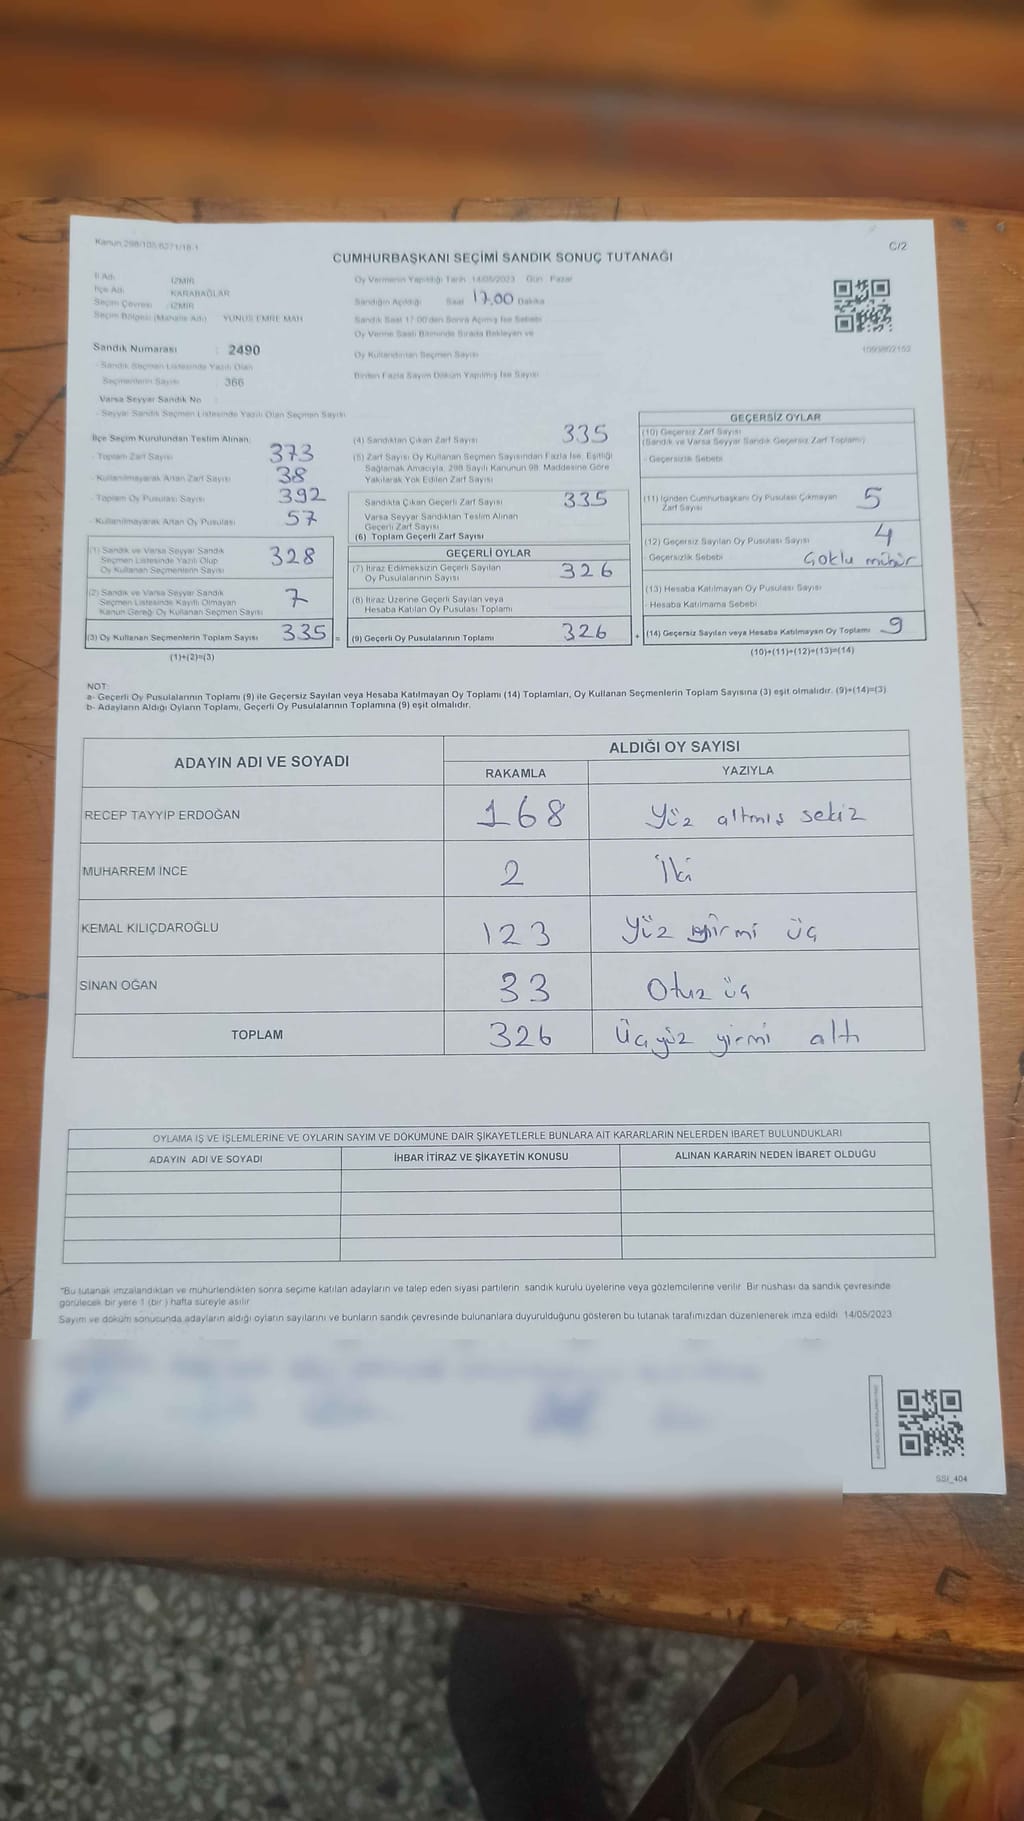 Kanun 298/105/6271/18-1
C/2
CUMHURBAŞKANI SEÇİMİ SANDIK SONUÇ TUTANAĞI
İl Adı : İZMİR
İlçe Adı : KARABAĞLAR
Seçim Çevresi : İZMİR
Seçim Bölgesi (Mahalle Adı) : YUNUS EMRE MAH
Sandık Numarası : 2490
- Sandık Seçmen Listesinde Yazılı Olan
Seçmenlerin Sayısı : 366
Varsa Seyyar Sandık No
- Seyyar Sandık Seçmen Listesinde Yazılı Olan Seçmen Sayısı
Oy Vermenin Yapıldığı Tarih 14/05/2023 Gün Pazar
Sandığın Açıldığı Saat 17.00 Dakika
Sandık Saat 17:00'den Sonra Açılmış İse Sebebi
Oy Verme Saati Bitiminde Sırada Bekleyen ve
Oy Kullandırılan Seçmen Sayısı
Birden Fazla Sayım Döküm Yapılmış İse Sayısı
İlçe Seçim Kurulundan Teslim Alınan;
- Toplam Zarf Sayısı 373
- Kullanılmayarak Artan Zarf Sayısı 38
- Toplam Oy Pusulası Sayısı 392
- Kullanılmayarak Artan Oy Pusulası 57
(1) Sandık ve Varsa Seyyar Sandık
Seçmen Listesinde Yazılı Olup
Oy Kullanan Seçmenlerin Sayısı 328
(2) Sandık ve Varsa Seyyar Sandık
Seçmen Listesinde Kayıtlı Olmayan
Kanun Gereği Oy Kullanan Seçmen Sayısı 7
(3) Oy Kullanan Seçmenlerin Toplam Sayısı 335 =
(1)+(2)=(3)
(4) Sandıktan Çıkan Zarf Sayısı 335
(5) Zarf Sayısı Oy Kullanan Seçmen Sayısından Fazla İse, Eşitliği
Sağlamak Amacıyla, 298 Sayılı Kanunun 98. Maddesine Göre
Yakılarak Yok Edilen Zarf Sayısı
Sandıkta Çıkan Geçerli Zarf Sayısı 335
Varsa Seyyar Sandıktan Teslim Alınan
Geçerli Zarf Sayısı
(6) Toplam Geçerli Zarf Sayısı
GEÇERLİ OYLAR
(7) İtiraz Edilmeksizin Geçerli Sayılan
Oy Pusulalarının Sayısı 326
(8) İtiraz Üzerine Geçerli Sayılan veya
Hesaba Katılan Oy Pusulası Toplamı
(9) Geçerli Oy Pusulalarının Toplamı 326 +
GEÇERSİZ OYLAR
(10) Geçersiz Zarf Sayısı
(Sandık ve Varsa Seyyar Sandık Geçersiz Zarf Toplamı)
- Geçersizlik Sebebi
(11) İçinden Cumhurbaşkanı Oy Pusulası Çıkmayan
Zarf Sayısı 5
(12) Geçersiz Sayılan Oy Pusulası Sayısı 4
- Geçersizlik Sebebi Çoklu mühür
(13) Hesaba Katılmayan Oy Pusulası Sayısı
- Hesaba Katılmama Sebebi
(14) Geçersiz Sayılan veya Hesaba Katılmayan Oy Toplamı 9
(10)+(11)+(12)+(13)=(14)
NOT:
a- Geçerli Oy Pusulalarının Toplamı (9) ile Geçersiz Sayılan veya Hesaba Katılmayan Oy Toplamı (14) Toplamları, Oy Kullanan Seçmenlerin Toplam Sayısına (3) eşit olmalıdır. (9)+(14)=(3)
b- Adayların Aldığı Oyların Toplamı, Geçerli Oy Pusulalarının Toplamına (9) eşit olmalıdır.
ADAYIN ADI VE SOYADI
ALDIĞI OY SAYISI
RAKAMLA YAZIYLA
RECEP TAYYİP ERDOĞAN 168 Yüz altmış sekiz
MUHARREM İNCE 2 İki
KEMAL KILIÇDAROĞLU 123 Yüz yirmi üç
SİNAN OĞAN 33 Otuz üç
TOPLAM 326 Üçyüz yirmi altı
OYLAMA İŞ VE İŞLEMLERİNE VE OYLARIN SAYIM VE DÖKÜMÜNE DAİR ŞİKAYETLERLE BUNLARA AİT KARARLARIN NELERDEN İBARET BULUNDUKLARI
ADAYIN ADI VE SOYADI İHBAR İTİRAZ VE ŞİKAYETİN KONUSU ALINAN KARARIN NEDEN İBARET OLDUĞU
*Bu tutanak imzalandıktan ve mühürlendikten sonra seçime katılan adayların ve talep eden siyasi partilerin sandık kurulu üyelerine veya gözlemcilerine verilir. Bir nüshası da sandık çevresinde
görülecek bir yere 1 (bir ) hafta süreyle asılır
Sayım ve döküm sonucunda adayların aldığı oyların sayılarını ve bunların sandık çevresinde bulunanlara duyurulduğunu gösteren bu tutanak tarafımızdan düzenlenerek imza edildi 14/05/2023
SSI_404